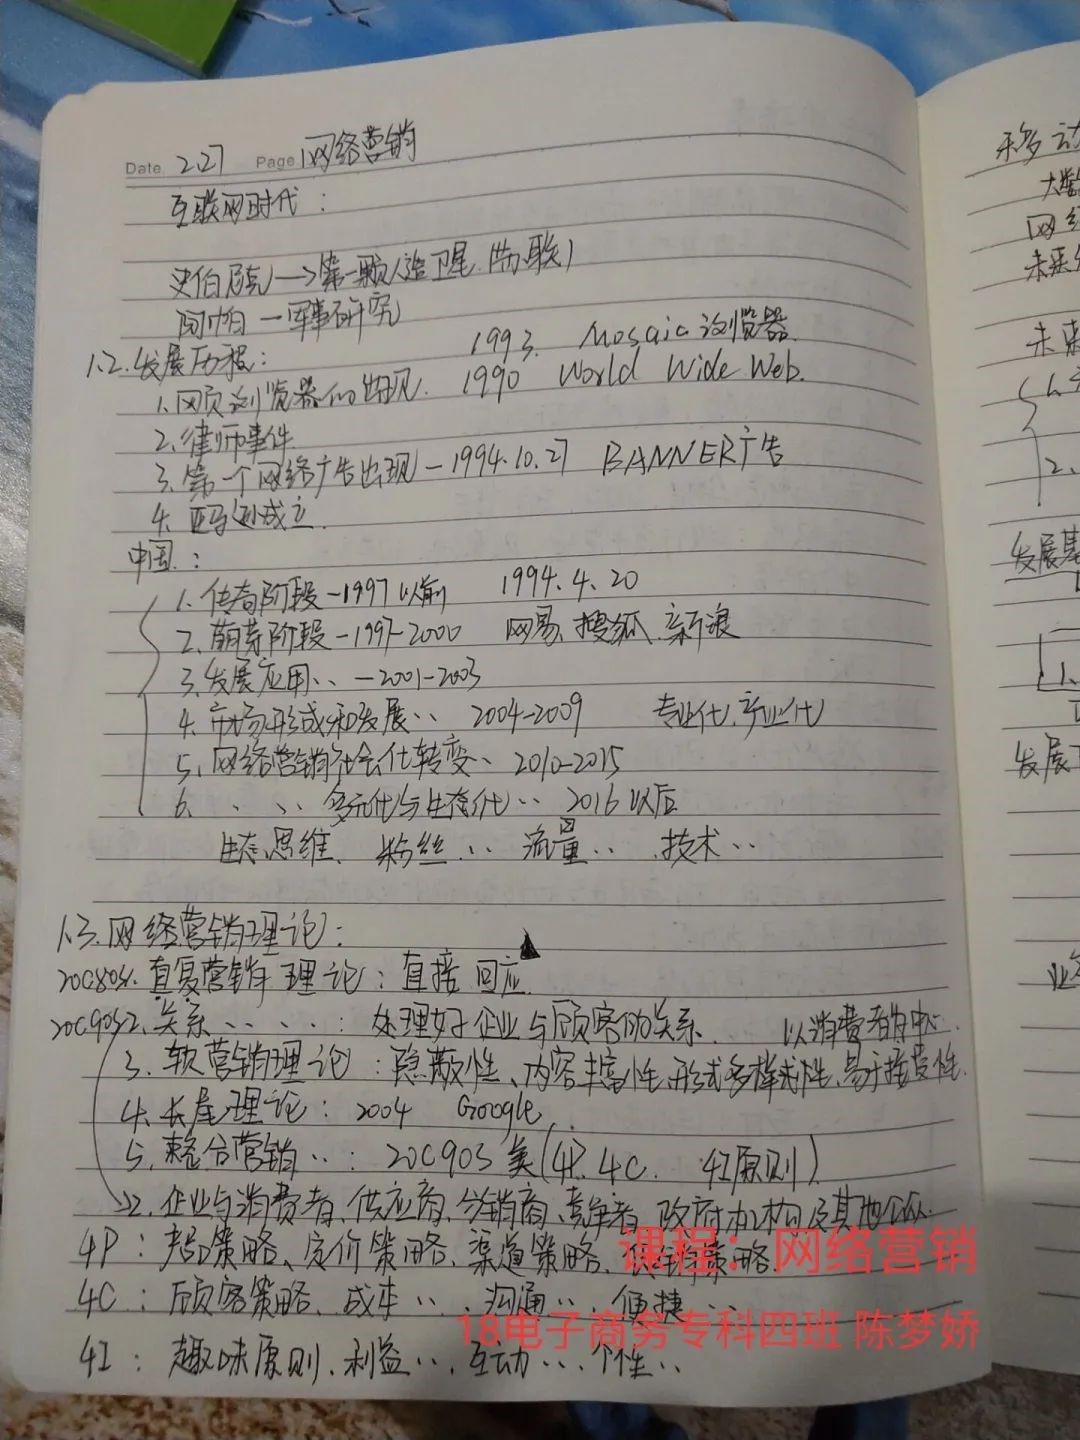 Date 2.27 Page 网络营销
互联网时代：
史伯尼克—>第一颗人造卫星.(苏联)
阿帕—军事研究
1993. Mosaic浏览器.
1.2.发展历程：
1.网页浏览器的出现. 1990 World Wide Web.
2.律师事件
3.第一个网络广告出现—1994.10.27 BANNER广告
4.亚马逊成立.
中国：
1.传奇阶段—1997以前 1994.4.20
2.萌芽阶段—1997-2000 网易、搜狐、新浪
3.发展应用〃—2001-2003
4.市场形成和发展〃 2004-2009 专业化、产业化
5.网络营销社会化转变〃 2010-2015
6.〃〃多元化与生态化〃 2016以后
生态思维、粉丝〃 流量〃、技术〃
1.3.网络营销理论：
20C80S1.直复营销理论：直接 回应
20C90S2.关系〃〃：处理好企业与顾客的关系. 以消费者为中心.
3.软营销理论：隐蔽性、内容丰富性、形式多样式性、易于接受性.
4.长尾理论：2004 Google.
5.整合营销〃：20C90S 美(4P. 4C. 4I原则)
2.企业与消费者、供应商、分销商、竞争者、政府机构及其他公众.
4P：产品策略、定价策略、渠道策略、促销策略
4C：顾客策略、成本〃、沟通〃、便捷〃
4I：趣味原则、利益〃、互动〃、个性〃
移动
大数
网络
未来
1.
2.
发展基
1.
发展
业
课程：网络营销
18电子商务专科四班 陈梦娇